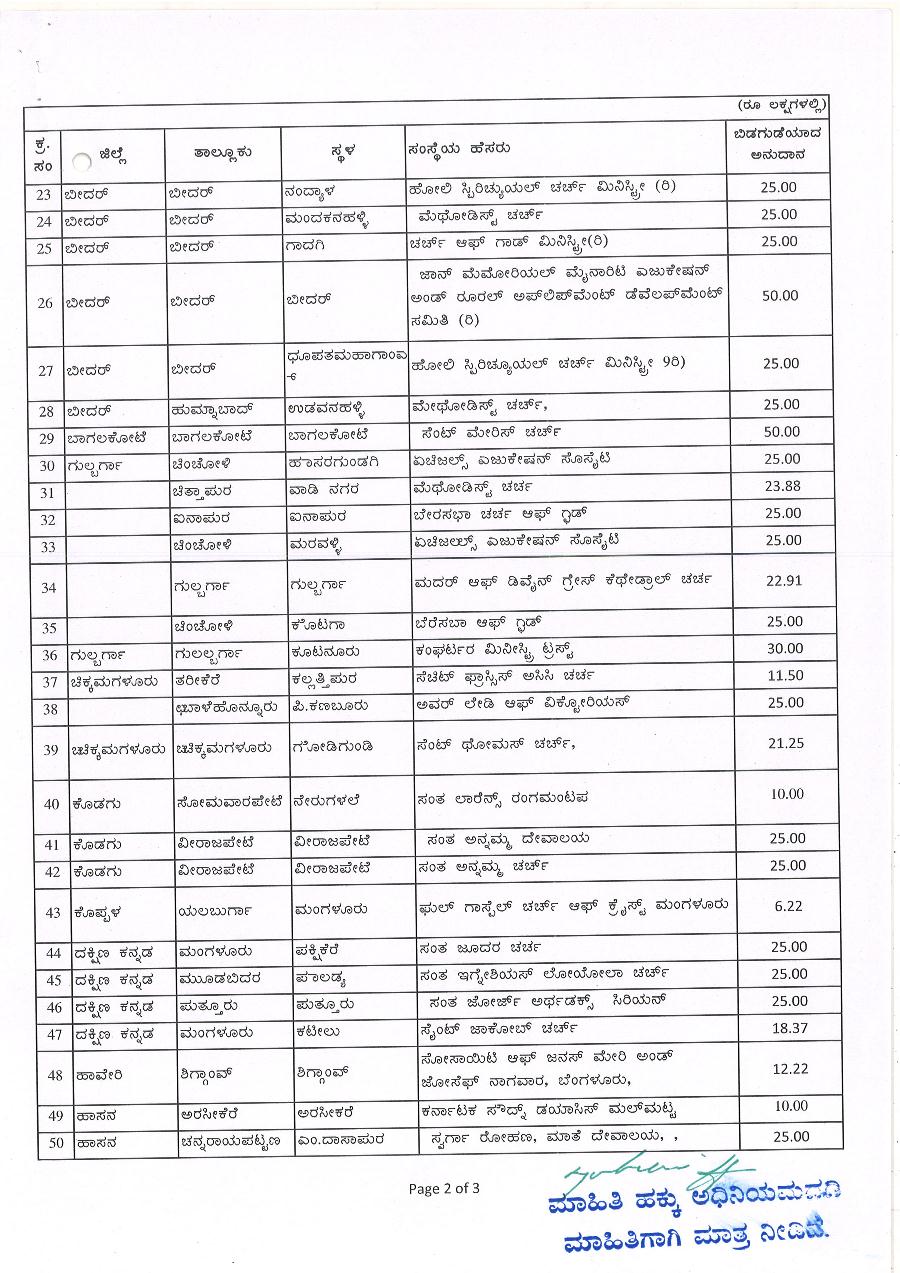 (ರೂ ಲಕ್ಷಗಳಲ್ಲಿ)
ಕ್ರ. ಸಂ ಜಿಲ್ಲೆ ತಾಲ್ಲೂಕು ಸ್ಥಳ ಸಂಸ್ಥೆಯ ಹೆಸರು ಬಿಡಗುಡೆಯಾದ ಅನುದಾನ
23 ಬೀದರ್ ಬೀದರ್ ನಂದ್ಯಾಳ ಹೋಲಿ ಸ್ಪಿರಿಚ್ಯುಯಲ್ ಚರ್ಚ್ ಮಿನಿಸ್ಟ್ರೀ (ರಿ) 25.00
24 ಬೀದರ್ ಬೀದರ್ ಮಂದಕನಹಳ್ಳಿ ಮೆಥೋಡಿಸ್ಟ್ ಚರ್ಚ್ 25.00
25 ಬೀದರ್ ಬೀದರ್ ಗಾದಗಿ ಚರ್ಚ್ ಆಫ್ ಗಾಡ್ ಮಿನಿಸ್ಟ್ರೀ(ರಿ) 25.00
ಜಾನ್ ಮೆಮೋರಿಯಲ್ ಮೈನಾರಿಟಿ ಎಜುಕೇಷನ್
26 ಬೀದರ್ ಬೀದರ್ ಬೀದರ್ ಅಂಡ್ ರೂರಲ್ ಅಪ್‌ಲಿಪ್‌ಮೆಂಟ್ ಡೆವೆಲಪ್‌ಮೆಂಟ್ 50.00
ಸಮಿತಿ (ರಿ)
27 ಬೀದರ್ ಬೀದರ್ ಧೂಪತಮಹಾಗಾಂವ ಹೋಲಿ ಸ್ಪಿರಿಚ್ಯೂಯಲ್ ಚರ್ಚ್ ಮಿನಿಸ್ಟ್ರೀ 9ರಿ) 25.00
28 ಬೀದರ್ ಹುಮ್ನಾಬಾದ್ ಉಡವನಹಳ್ಳಿ ಮೇಥೋಡಿಸ್ಟ್ ಚರ್ಚ್, 25.00
29 ಬಾಗಲಕೋಟೆ ಬಾಗಲಕೋಟೆ ಬಾಗಲಕೋಟೆ ಸೆಂಟ್ ಮೇರಿಸ್ ಚರ್ಚ್ 50.00
30 ಗುಲ್ಬರ್ಗಾ ಚಿಂಚೋಳಿ ಹಾಸರಗುಂಡಗಿ ಏಚಿಜಲ್ಸ್ ಎಜುಕೇಷನ್ ಸೊಸೈಟಿ 25.00
31 ಚಿತ್ತಾಪುರ ವಾಡಿ ನಗರ ಮೆಥೋಡಿಸ್ಟ್ ಚರ್ಚ 23.88
32 ಐನಾಪುರ ಐನಾಪುರ ಬೇರಸಭಾ ಚರ್ಚ ಆಫ್ ಗ್ಡಡ್ 25.00
33 ಚಿಂಚೋಳಿ ಮರವಳ್ಳಿ ಏಚಿಜಲ್ಲ್ಸ್ ಎಜುಕೇಷನ್ ಸೊಸೈಟಿ 25.00
34 ಗುಲ್ಬರ್ಗಾ ಗುಲ್ಬರ್ಗಾ ಮದರ್ ಆಫ್ ಡಿವೈನ್ ಗ್ರೇಸ್ ಕೆಥೇಡ್ರಾಲ್ ಚರ್ಚ 22.91
35 ಚಿಂಚೋಳಿ ಕೊಟಗಾ ಬೆರೆಸಬಾ ಆಫ್ ಗ್ಡಡ್ 25.00
36 ಗುಲ್ಬರ್ಗಾ ಗುಲಲ್ಬರ್ಗಾ ಕೂಟನೂರು ಕಂಫರ್ಟರ ಮಿನೀಸ್ಟ್ರಿ ಟ್ರಸ್ಟ್ 30.00
37 ಚಿಕ್ಕಮಗಳೂರು ತರೀಕೆರೆ ಕಲ್ಲತ್ತಿಪುರ ಸೆಚಿಟ್ ಫ್ರಾಸ್ಸಿಸ್ ಅಸಿಸಿ ಚರ್ಚ 11.50
38 ಛಾಳೆಹೊನ್ನೂರು ಪಿ.ಕಣಬೂರು ಅವರ್ ಲೇಡಿ ಆಫ್ ವಿಕ್ಟೋರಿಯಸ್ 25.00
39 ಚ್ಚಿಕ್ಕಮಗಳೂರು ಚ್ಚಿಕ್ಕಮಗಳೂರು ಗೋಡಿಗುಂಡಿ ಸೆಂಟ್ ಥೋಮಸ್ ಚರ್ಚ್, 21.25
40 ಕೊಡಗು ಸೋಮವಾರಪೇಟೆ ನೇರುಗಳಲೆ ಸಂತ ಲಾರೆನ್ಸ್ ರಂಗಮಂಟಪ 10.00
41 ಕೊಡಗು ವೀರಾಜಪೇಟೆ ವೀರಾಜಪೇಟೆ ಸಂತ ಅನ್ನಮ್ಮ ದೇವಾಲಯ 25.00
42 ಕೊಡಗು ವೀರಾಜಪೇಟೆ ವೀರಾಜಪೇಟೆ ಸಂತ ಅನ್ನಮ್ಮ ಚರ್ಚ್ 25.00
43 ಕೊಪ್ಪಳ ಯಲಬುರ್ಗಾ ಮಂಗಳೂರು ಫುಲ್ ಗಾಸ್ಪೆಲ್ ಚರ್ಚ್ ಆಫ್ ಕ್ರೈಸ್ಟ್ ಮಂಗಳೂರು 6.22
44 ದಕ್ಷಿಣ ಕನ್ನಡ ಮಂಗಳೂರು ಪಕ್ಷಿಕೆರೆ ಸಂತ ಜೂದರ ಚರ್ಚ 25.00
45 ದಕ್ಷಿಣ ಕನ್ನಡ ಮೂಡಬಿದರ ಪಾಲಡ್ಯ ಸಂತ ಇಗ್ನೇಶಿಯಸ್ ಲೋಯೋಲಾ ಚರ್ಚ್ 25.00
46 ದಕ್ಷಿಣ ಕನ್ನಡ ಪುತ್ತೂರು ಪುತ್ತೂರು ಸಂತ ಜೋರ್ಜ್ ಅರ್ಥಡಕ್ಸ್ ಸಿರಿಯನ್ 25.00
47 ದಕ್ಷಿಣ ಕನ್ನಡ ಮಂಗಳೂರು ಕಟೀಲು ಸೈಂಟ್ ಜಾಕೋಬ್ ಚರ್ಚ್ 18.37
48 ಹಾವೇರಿ ಶಿಗ್ಗಾಂವ್ ಶಿಗ್ಗಾಂವ್ ಸೋಸಾಯಿಟಿ ಆಫ್ ಜನಸ್ ಮೇರಿ ಅಂಡ್ 12.22
ಜೋಸೆಫ್ ನಾಗವಾರ, ಬೆಂಗಳೂರು,
49 ಹಾಸನ ಅರಸೀಕೆರೆ ಅರಸೀಕರೆ ಕರ್ನಾಟಕ ಸೌದ್ನ್ ಡಯಾಸಿಸ್ ಮಲ್‌ಮಟ್ಟ 10.00
50 ಹಾಸನ ಚನ್ನರಾಯಪಟ್ಟಣ ಎಂ.ದಾಸಾಪುರ ಸ್ವರ್ಗಾ ರೋಹಣ, ಮಾತೆ ದೇವಾಲಯ, , 25.00
Page 2 of 3
ಮಾಹಿತಿ ಹಕ್ಕು ಅಧಿನಿಯಮದಡಿ
ಮಾಹಿತಿಗಾಗಿ ಮಾತ್ರ ನೀಡಿದೆ.